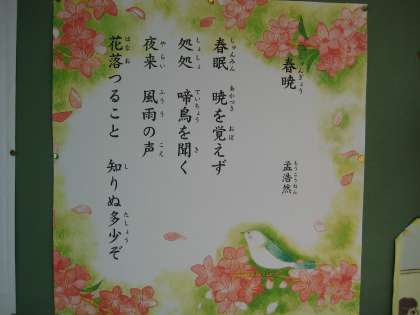 春暁
孟浩然
春眠 暁を覚えず
処処 啼鳥を聞く
夜来 風雨の声
花落つること 知りぬ多少ぞ